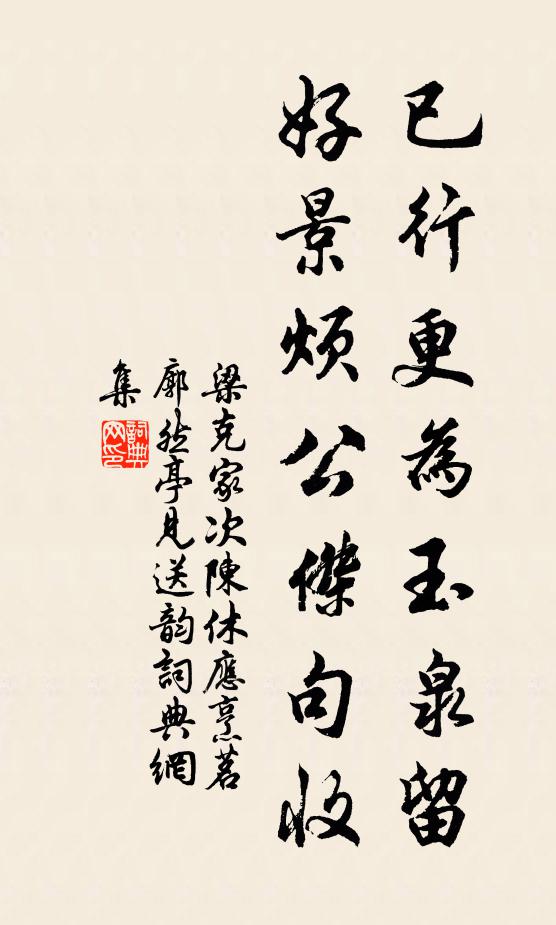 已行更為玉泉留
好景煩公傑句收
梁克家次陳休應烹茗
廓然亭見送韵詞典網
集
詞典
网印